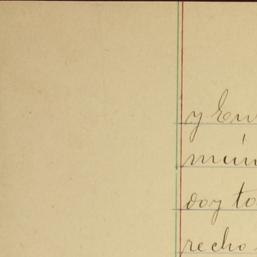 y En
muni
doy to
recho